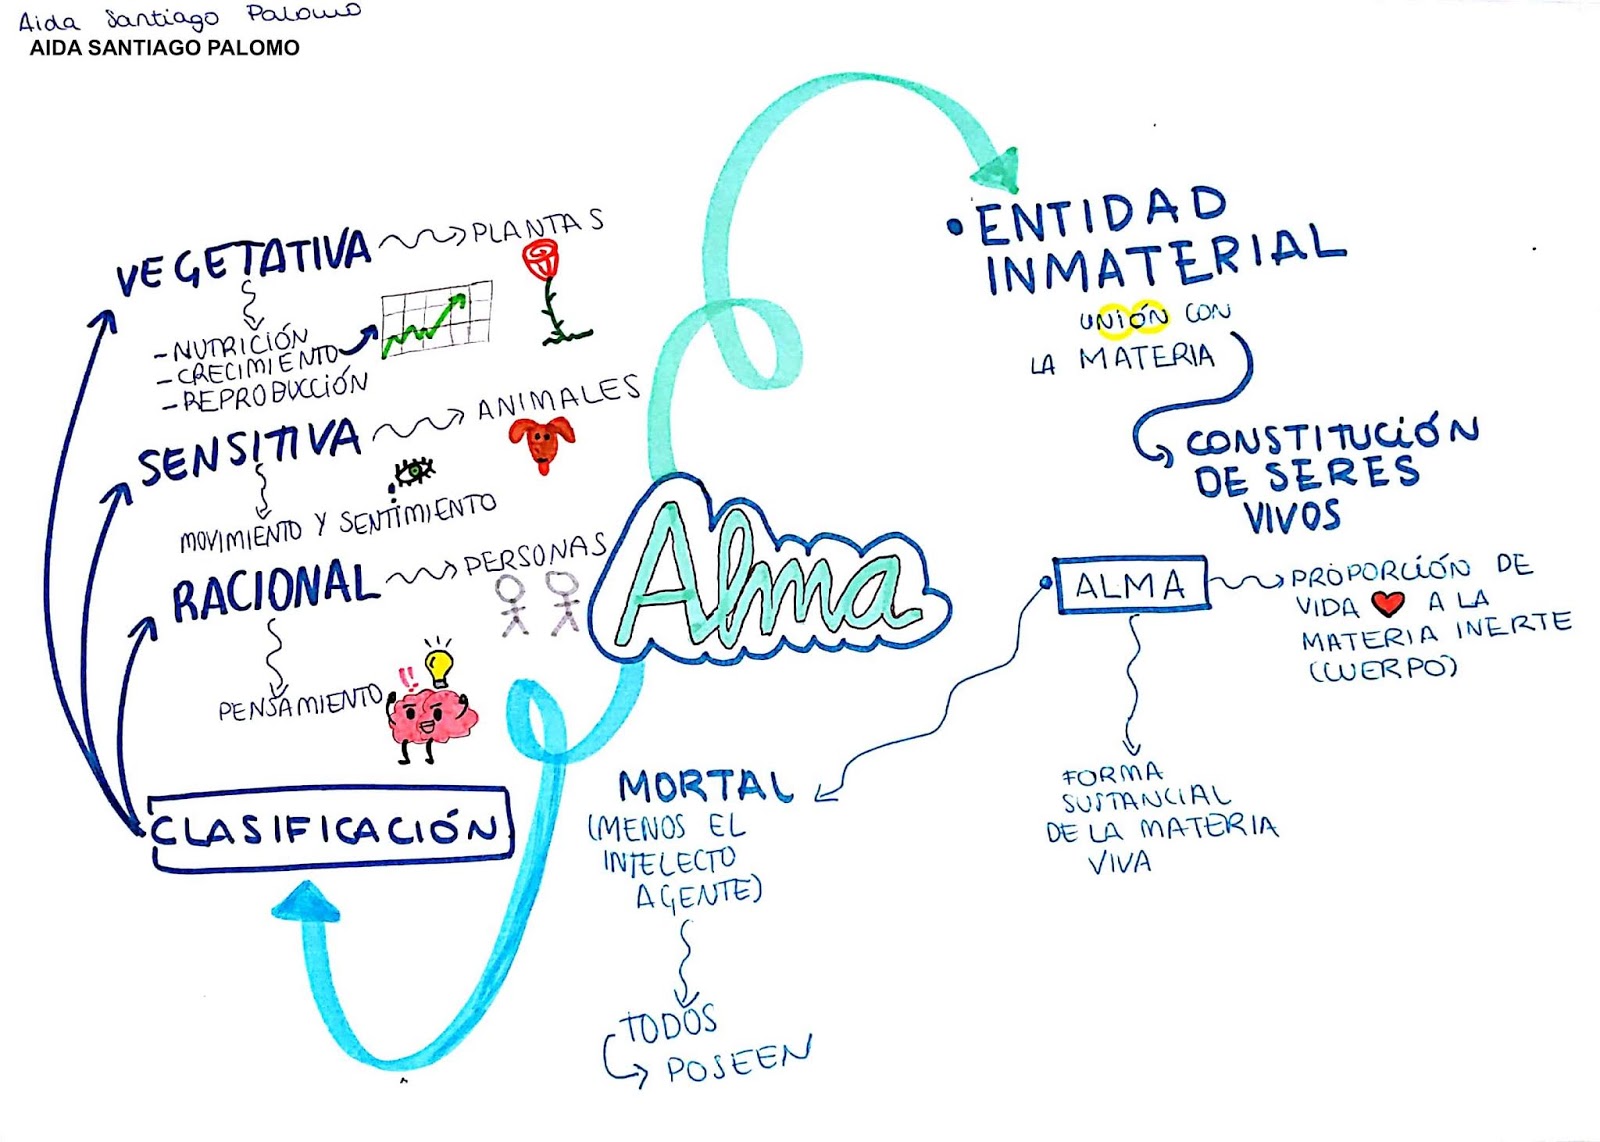 Aida Santiago Palomo
AIDA SANTIAGO PALOMO
VEGETATIVA
PLANTAS
- NUTRICIÓN
- CRECIMIENTO
- REPRODUCCIÓN
SENSITIVA
ANIMALES
MOVIMIENTO Y SENTIMIENTO
RACIONAL
PERSONAS
PENSAMIENTO
!!
CLASIFICACIÓN
Alma
• ENTIDAD
INMATERIAL
UNIÓN CON
LA MATERIA
CONSTITUCIÓN
DE SERES
VIVOS
• ALMA
PROPORCIÓN DE
VIDA ❤ A LA
MATERIA INERTE
(CUERPO)
FORMA
SUSTANCIAL
DE LA MATERIA
VIVA
MORTAL
(MENOS EL
INTELECTO
AGENTE)
TODOS
POSEEN